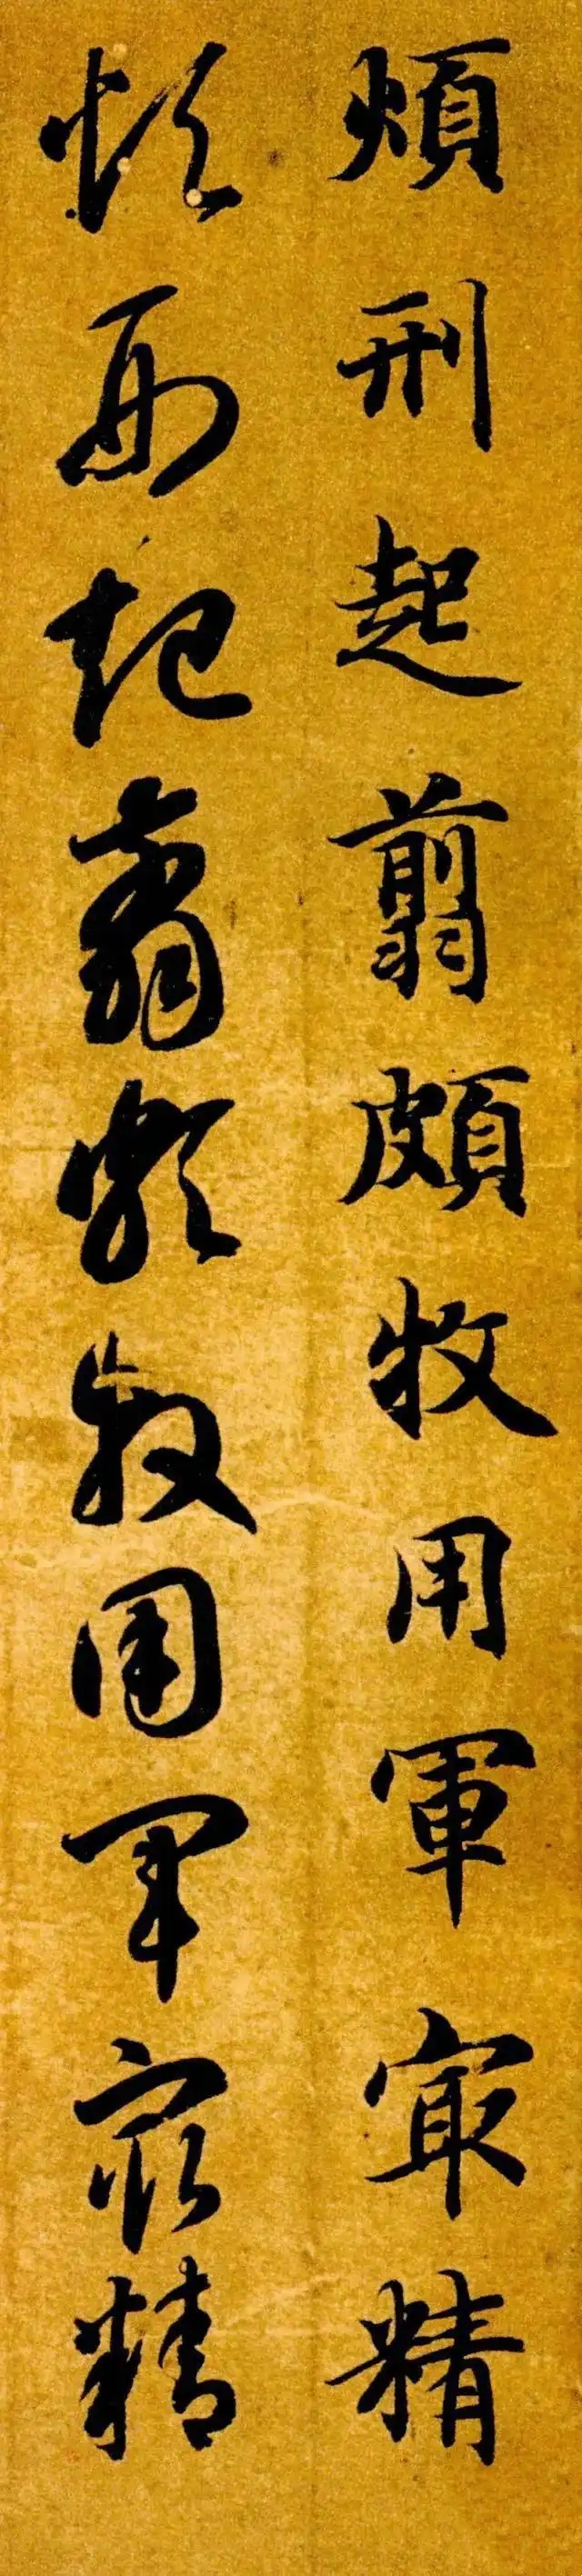 煩刑起翦頗牧用軍冣精
煩刑起翦頗牧用軍冣精